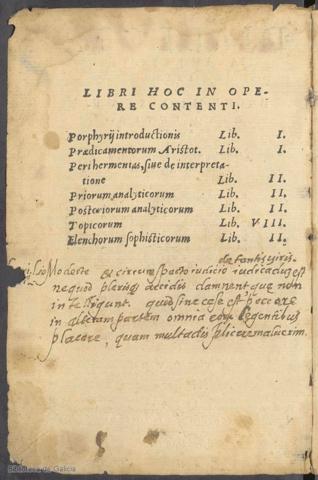 LIBRI HOC IN OPE-
RE CONTENTI.
Porphyrij introductionis Lib. I.
Prædicamentorum Aristot. Lib. I.
Peri hermenias, siue de interpreta-
tione Lib. II.
Priorum analyticorum Lib. II.
Posteriorum analyticorum Lib. II.
Topicorum Lib. VIII.
Elenchorum sophisticorum Lib. II.
de tantis viris
Modeste et circunspecto iudicio iudicadus est
nequod plærisq accidit damnent quæ non
in gunt. quod si necesse est
in alteram partem omnia legentibus
placere, quam multa displicere maluerim.
Biblioteca de Galicia